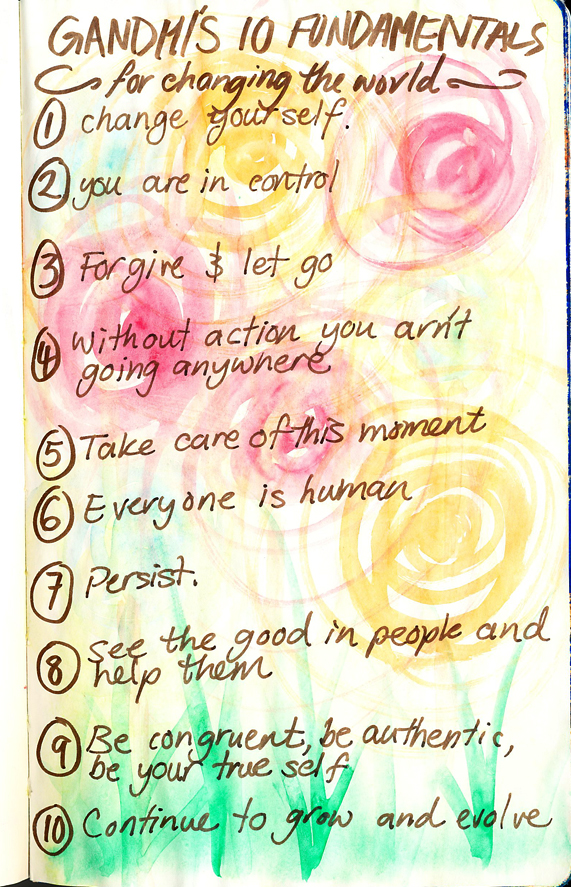 GANDHI'S 10 FUNDAMENTALS
for changing the world
1 change yourself.
2 you are in control
3 Forgive & let go
4 without action you arn't
going anywhere
5 Take care of this moment
6 Everyone is human
7 Persist.
8 see the good in people and
help them
9 Be congruent, be authentic,
be your true self.
10 Continue to grow and evolve